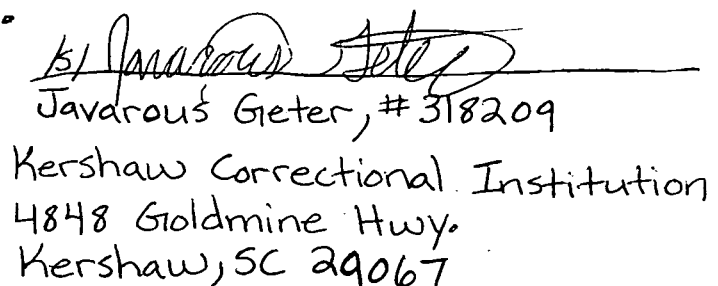 /s/ Javarous Geter
Javarous Geter, #318209
Kershaw Correctional Institution
4848 Goldmine Hwy.
Kershaw, SC 29067